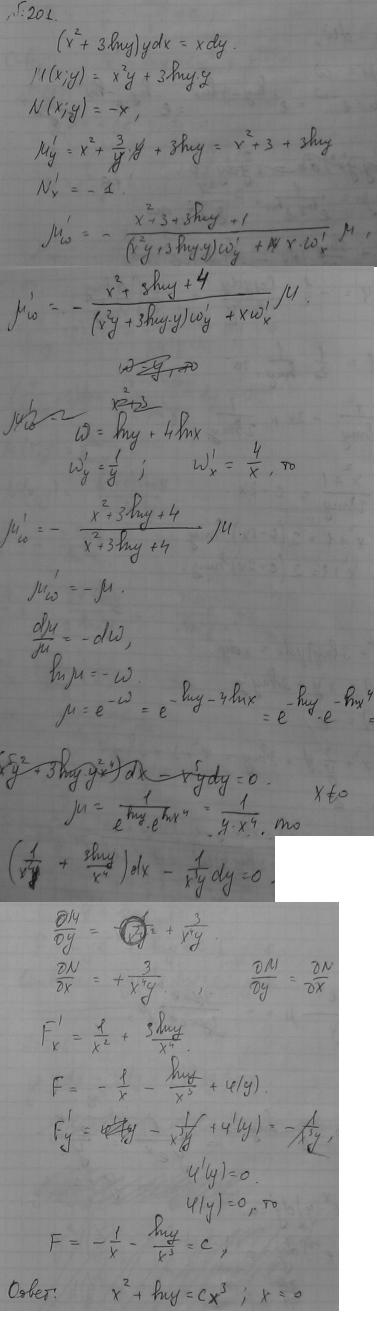 №201.
(x² + 3lny)ydx = xdy.
M(x;y) = x²y + 3lny·y
N(x;y) = -x,
M'y = x² + 3/y · y + 3lny = x² + 3 + 3lny
N'x = -1.
μ'ω = - (x² + 3 + 3lny + 1)/((x²y + 3lny·y)ω'y + x·ω'x) μ,
μ'ω = - (x² + 3lny + 4)/((x²y + 3lny·y)ω'y + xω'x) μ.
ω = lny + 4lnx
ω'y = 1/y ; ω'x = 4/x, то
μ'ω = - (x² + 3lny + 4)/(x² + 3lny + 4) μ.
μ'ω = -μ.
dμ/μ = -dω,
lnμ = -ω.
μ = e^(-ω) = e^(-lny - 4lnx) = e^(-lny) · e^(-lnx⁴) =
x≠0
μ = 1/(e^(lny) · e^(lnx⁴)) = 1/(y·x⁴), то
(1/x² + 3lny/x⁴)dx - 1/(x³y) dy = 0.
∂M/∂y = + 3/(x⁴y).
∂N/∂x = + 3/(x⁴y) , ∂M/∂y = ∂N/∂x
F'x = 1/x² + 3lny/x⁴.
F = - 1/x - lny/x³ + φ(y).
F'y = - 1/(x³y) + φ'(y) = - 1/(x³y),
φ'(y) = 0.
φ(y) = 0, то
F = - 1/x - lny/x³ = c,
Ответ: x² + lny = cx³ ; x = 0